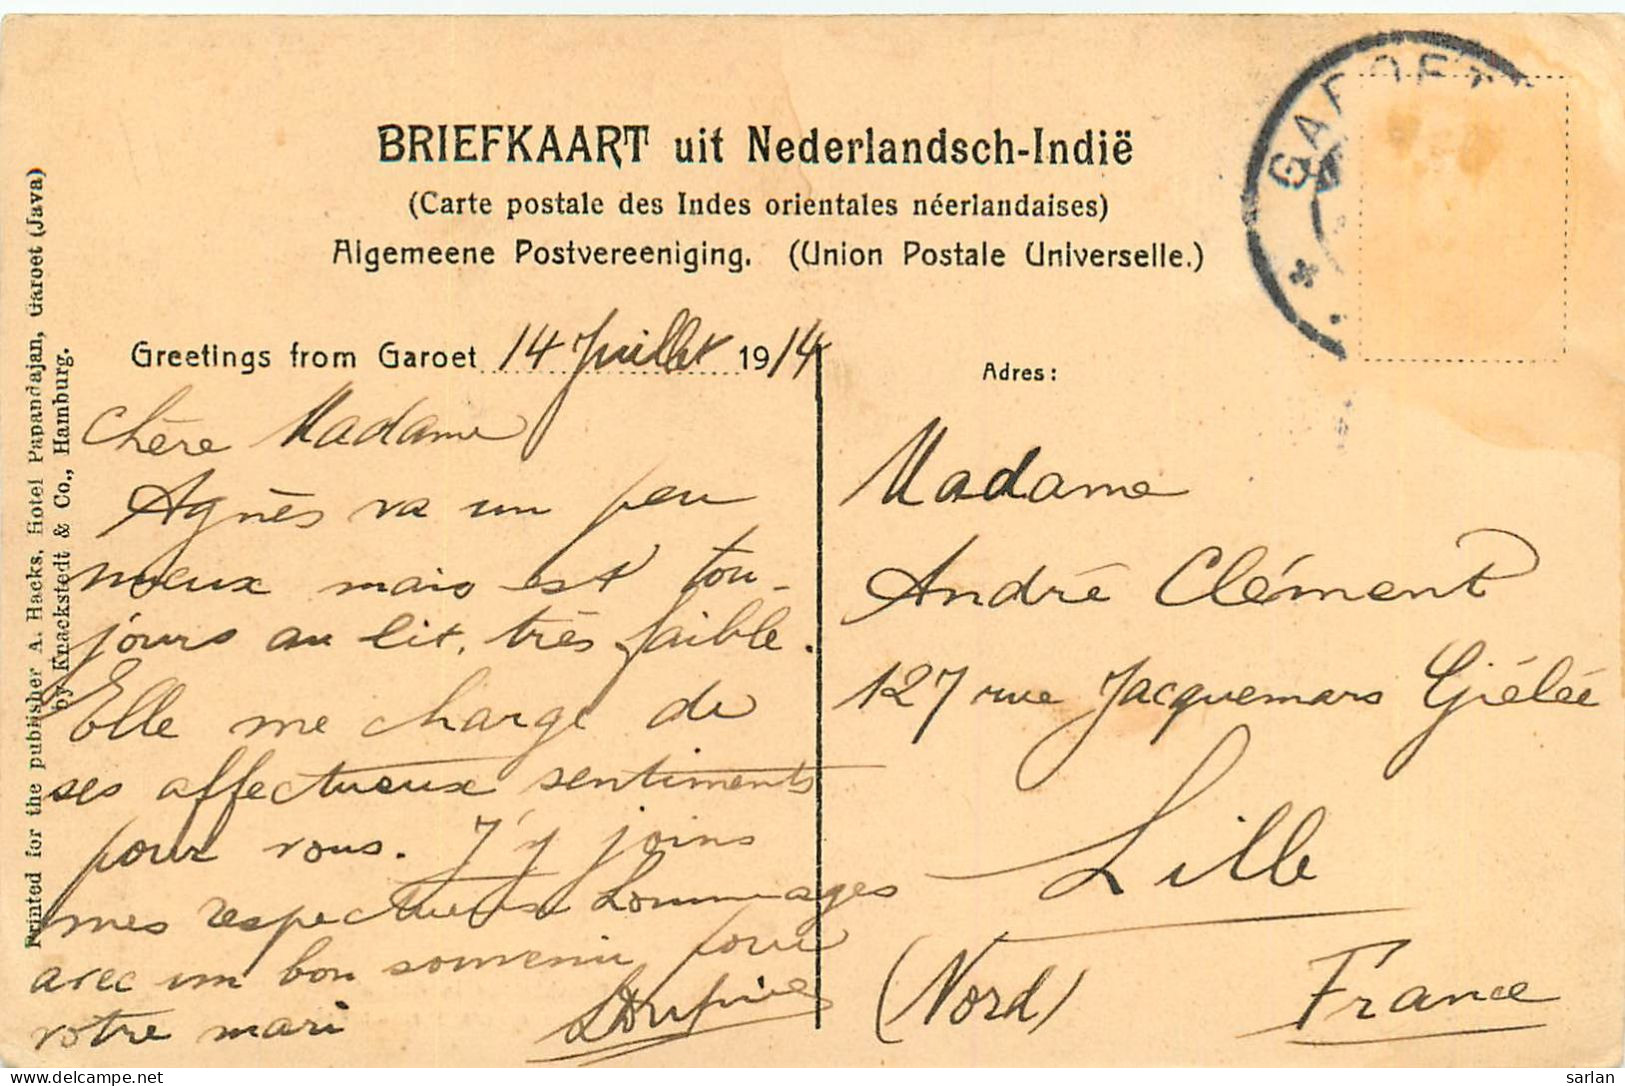 BRIEFKAART uit Nederlandsch-Indië
(Carte postale des Indes orientales néerlandaises)
Algemeene Postvereeniging. (Union Postale Universelle.)
GAROET
Greetings from Garoet 14 Juillet 1914
Chère Madame
Agnès va un peu
mieux mais est tou-
jours au lit, très faible.
Elle me charge de
ses affectueux sentiments
pour vous. J'y joins
mes respectueux hommages
avec un bon souvenir pour
votre mari
Adres:
Madame
André Clément
127 rue Jacquemars Giélée
Lille
(Nord) France
Printed for the publisher A. Hacks, Hotel Papandajan, Garoet (Java)
by Knackstedt & Co., Hamburg.
delcampe.net
sarlan